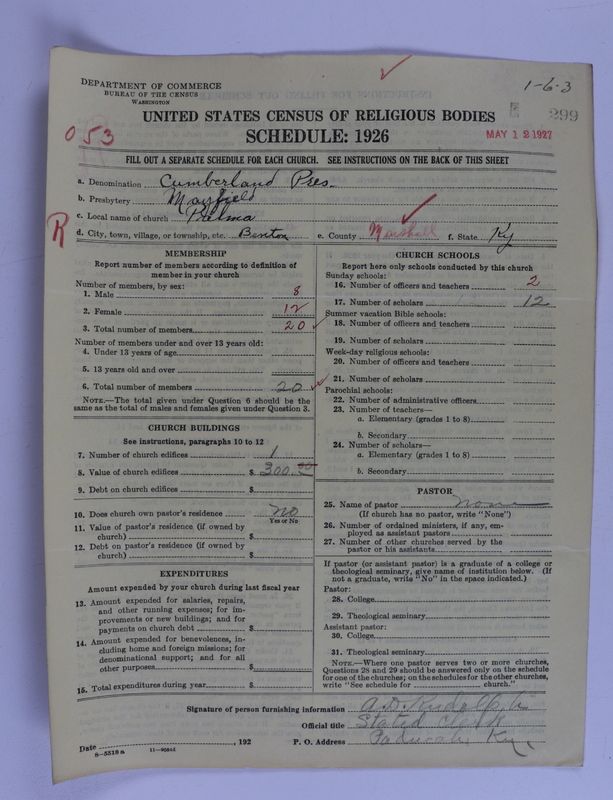 DEPARTMENT OF COMMERCE
BUREAU OF THE CENSUS
WASHINGTON
1-6-3
299
UNITED STATES CENSUS OF RELIGIOUS BODIES
SCHEDULE: 1926
MAY 12 1927
053
FILL OUT A SEPARATE SCHEDULE FOR EACH CHURCH. SEE INSTRUCTIONS ON THE BACK OF THIS SHEET
a. Denomination Cumberland Pres.
b. Presbytery Mayfield
c. Local name of church Palma
R
d. City, town, village, or township, etc. Benton e. County Marshall f. State Ky
MEMBERSHIP
Report number of members according to definition of
member in your church
Number of members, by sex:
1. Male 8
2. Female 12
3. Total number of members 20
Number of members under and over 13 years old:
4. Under 13 years of age
5. 13 years old and over
6. Total number of members 20
NOTE.—The total given under Question 6 should be the
same as the total of males and females given under Question 3.
CHURCH BUILDINGS
See instructions, paragraphs 10 to 12
7. Number of church edifices 1
8. Value of church edifices $ 300.00
9. Debt on church edifices $
10. Does church own pastor's residence No
Yes or No
11. Value of pastor's residence (if owned by
church) $
12. Debt on pastor's residence (if owned by
church) $
EXPENDITURES
Amount expended by your church during last fiscal year
13. Amount expended for salaries, repairs,
and other running expenses; for im-
provements or new buildings; and for
payments on church debt $
14. Amount expended for benevolences, in-
cluding home and foreign missions; for
denominational support; and for all
other purposes $
15. Total expenditures during year $
CHURCH SCHOOLS
Report here only schools conducted by this church
Sunday schools:
16. Number of officers and teachers 2
17. Number of scholars 12
Summer vacation Bible schools:
18. Number of officers and teachers
19. Number of scholars
Week-day religious schools:
20. Number of officers and teachers
21. Number of scholars
Parochial schools:
22. Number of administrative officers
23. Number of teachers—
a. Elementary (grades 1 to 8)
b. Secondary
24. Number of scholars—
a. Elementary (grades 1 to 8)
b. Secondary
PASTOR
25. Name of pastor None
(If church has no pastor, write "None")
26. Number of ordained ministers, if any, em-
ployed as assistant pastors
27. Number of other churches served by the
pastor or his assistants
If pastor (or assistant pastor) is a graduate of a college or
theological seminary, give name of institution below. (If
not a graduate, write "No" in the space indicated.)
Pastor:
28. College
29. Theological seminary
Assistant pastor:
30. College
31. Theological seminary
NOTE.—Where one pastor serves two or more churches,
Questions 28 and 29 should be answered only on the schedule
for one of the churches; on the schedules for the other churches,
write "See schedule for church."
Signature of person furnishing information A.D. Rudolph
Official title Stated Clerk
Date , 192 P. O. Address Paducah, Ky.
8-5518a 11-9054d